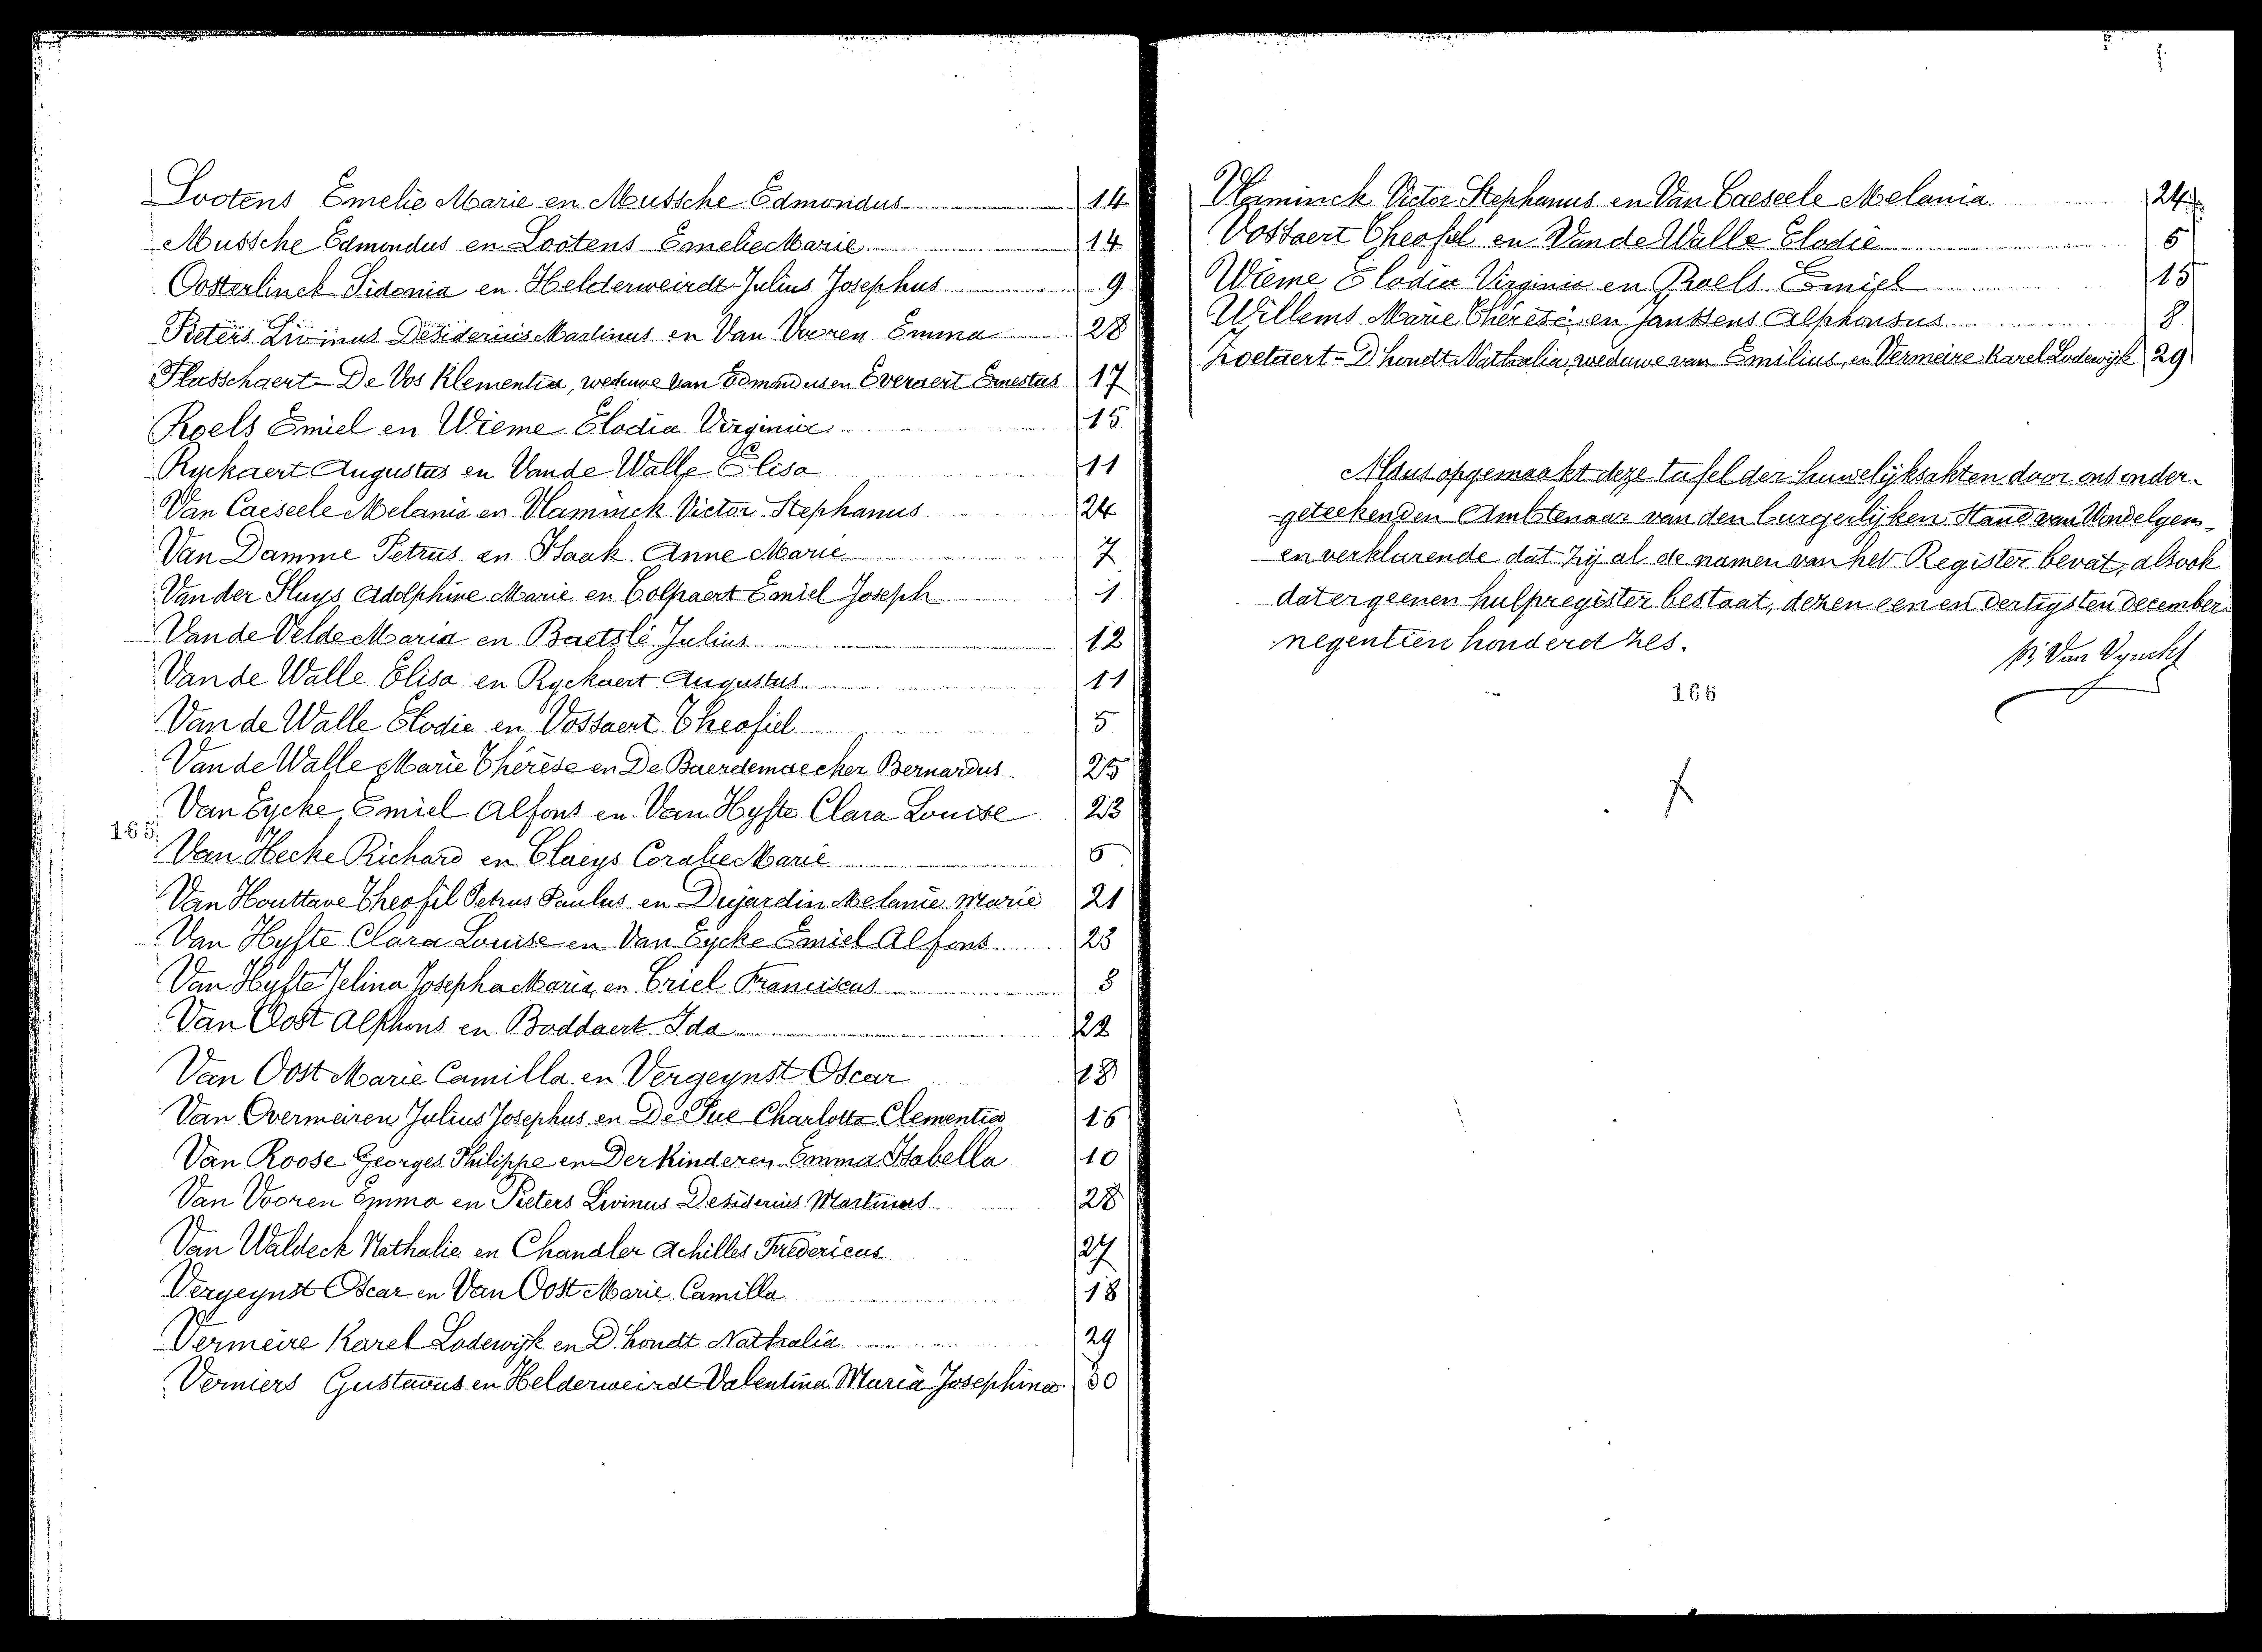 Lootens Emelie Marie en Mussche Edmondus 14
Mussche Edmondus en Lootens Emelie Marie 14
Oosterlinck Sidonia en Helderweirdt Julius Josephus 9
Pieters Livinus Desiderius Martinus en Van Vooren Emma 28
Plasschaert - De Vos Klementia, weduwe van Edmondus en Everaert Ernestus 17
Roels Emiel en Wieme Elodia Virginia 15
Ryckaert Augustus en Vande Walle Elisa 11
Van Caeseele Melania en Vlaminck Victor Stephanus 24
Van Damme Petrus en Haak Anne Marie 7
Van der Sluys Adolphine Marie en Colpaert Emiel Joseph 1
Vande Velde Maria en Baetslé Julius 12
Vande Walle Elisa en Ryckaert Augustus 11
Van de Walle Elodie en Vossaert Theofiel 5
Vande Walle Marie Thérèse en De Baerdemaecker Bernardus 25
Van Eycke Emiel Alfons en Van Hyfte Clara Louise 23
165.
Van Hecke Richard en Claeys Coralie Marie 6
Van Houttave Theofil Petrus Paulus en Dujardin Melanie Marie 21
Van Hyfte Clara Louise en Van Eycke Emiel Alfons 23
Van Hyfte Jelina Josepha Maria en Criel Franciscus 3
Van Oost Alphons en Boddaert Ida 22
Van Oost Marie Camilla en Vergeynst Oscar 18
Van Overmeiren Julius Josephus en De Pue Charlotta Clementia 16
Van Roose Georges Philippe en Der Kinderen Emma Isabella 10
Van Vooren Emma en Pieters Livinus Desiderius Martinus 28
Van Waldeck Nathalie en Chandler Achilles Fredericus 27
Vergeynst Oscar en Van Oost Marie Camilla 18
Vermeire Karel Lodewijk en D'hondt Nathalia 29
Verniers Gustavus en Helderweirdt Valentina Maria Josephina 30
Vlaminck Victor Stephanus en Van Caeseele Melania 24
Vossaert Theofiel en Vande Walle Elodie 5
Wieme Elodia Virginia en Roels Emiel 15
Willems Marie Thérèse en Janssens Alphonsus 8
Zoetaert - D'hondt Nathalia, weduwe van Emilius, en Vermeire Karel Lodewijk 29
Aldus opgemaakt deze tafel der huwelijksakten door ons onder-
geteekenden Ambtenaar van den burgerlijken Stand van
en verklarende dat zij al de namen van het Register bevat, alsook
dat er geenen hulpregister bestaat, dezen eenen dertigsten december
negentien honderd zes.
166